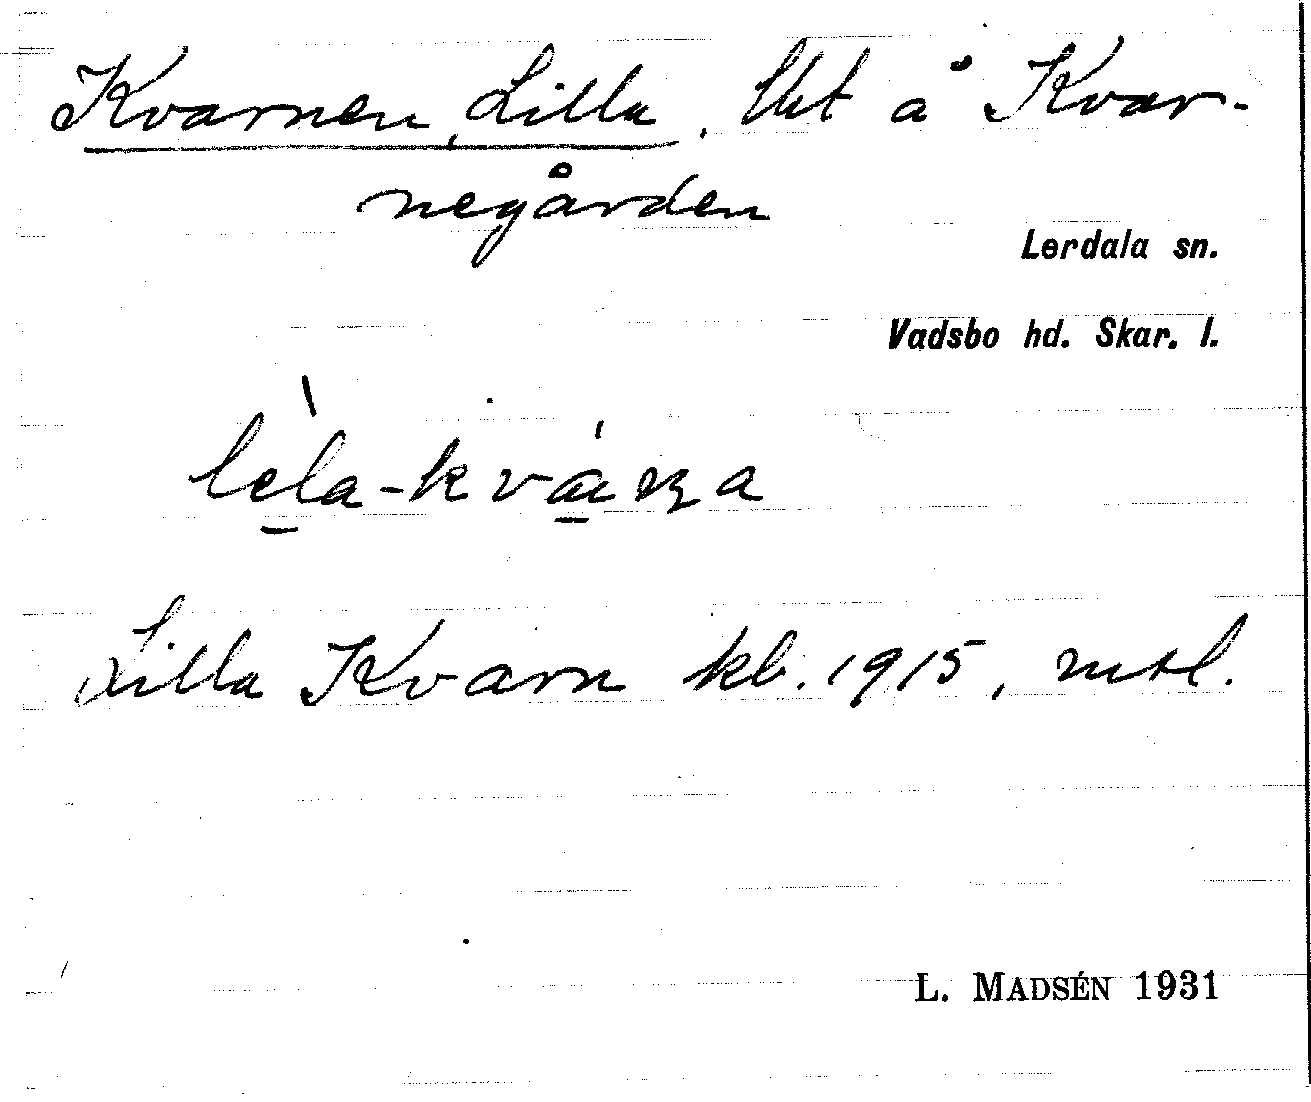 Kvarnen, Lilla, lht å Kvar-
negården
Lerdala sn.
Vadsbo hd. Skar. l.
Lilla Kvarn kb. 1915, mtl.
L. MADSÉN 1931